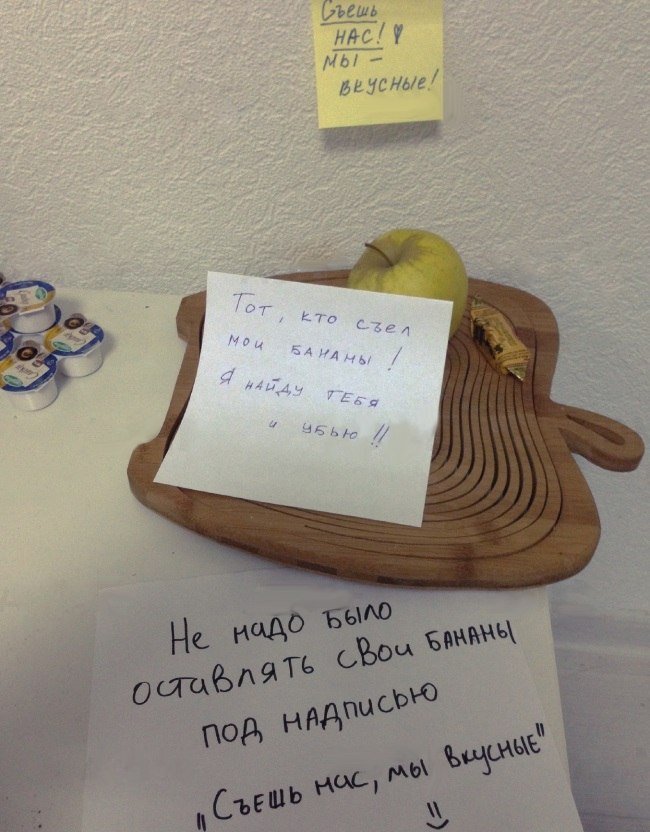 Съешь
НАС!
МЫ –
ВКУСНЫЕ!
Тот, кто съел
мои бананы!
Я найду тебя
и убью!!
Не надо было
оставлять свои бананы
под надписью
„Съешь нас, мы вкусные"